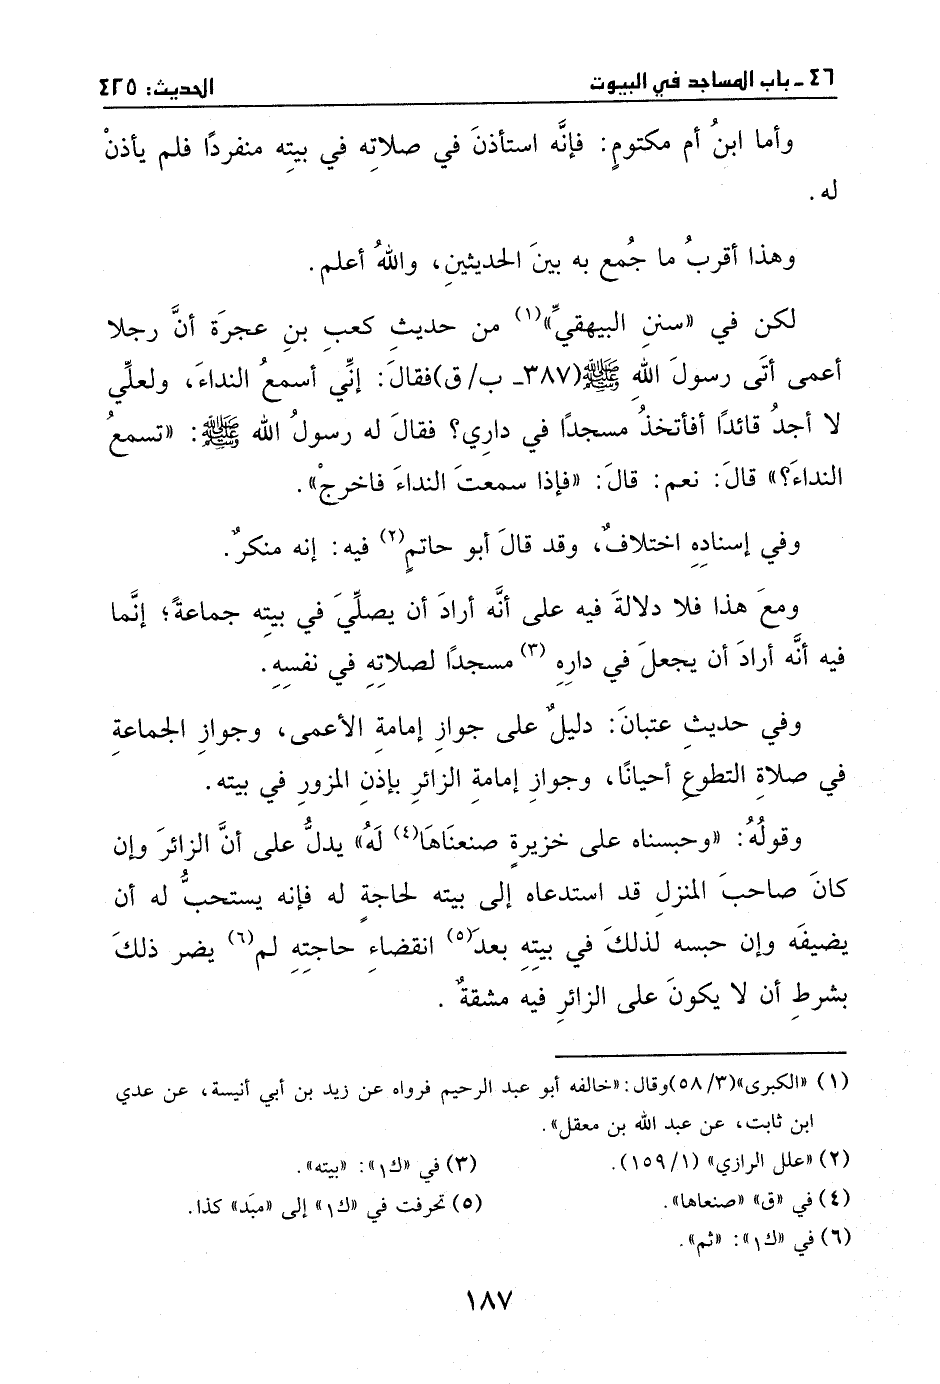 ٤٦ - باب المساجد في البيوت الحديث: ٤٢٥
وأما ابنُ أم مكتومٍ: فإنَّه استأذنَ في صلاتِه في بيتِه منفردًا فلم يأذنْ
له.
وهذا أقربُ ما جُمع به بينَ الحديثينِ، واللهُ أعلم.
لكن في «سننِ البيهقيِّ»(١) من حديثِ كعبِ بنِ عجرَة أنَّ رجلا
أعمى أتَى رسولَ اللهِ ﷺ(٣٨٧ـ ب/ ق)فقالَ: إنِّي أسمعُ النداءَ، ولعلِّي
لا أجدُ قائدًا أفأتخذُ مسجدًا في دارِي؟ فقالَ له رسولُ الله ﷺ: «تسمعُ
النداءَ؟» قالَ: نعم: قالَ: «فإذا سمعتَ النداءَ فاخرجْ».
وفي إسنادِهِ اختلافٌ، وقد قالَ أبو حاتمٍ(٢) فيه: إنه منكرٌ.
ومعَ هذا فلا دلالةَ فيه على أنَّه أرادَ أن يصلِّيَ في بيتِه جماعةً؛ إنَّما
فيه أنَّه أرادَ أن يجعلَ في دارِهِ (٣) مسجدًا لصلاتِهِ في نفسِهِ.
وفي حديثِ عتبانَ: دليلٌ على جوازِ إمامةِ الأعمى، وجوازِ الجماعةِ
في صلاةِ التطوعِ أحيانًا، وجوازِ إمامةِ الزائرِ بإذنِ المزورِ في بيته.
وقولُهُ: «وحبسناه على خزيرةٍ صنعنَاهَا(٤) لَهُ» يدلُّ على أنَّ الزائرَ وإن
كانَ صاحبَ المنزلِ قد استدعاه إلى بيته لحاجةٍ له فإنه يستحبُّ له أن
يضيفَه وإن حبسه لذلكَ في بيتِهِ بعدَ(٥) انقضاءِ حاجتِهِ لم(٦) يضر ذلكَ
بشرطِ أن لا يكونَ على الزائرِ فيه مشقةٌ .
(١) «الكبرى»(٥٨/٣)وقال:«خالفه أبو عبد الرحيم فرواه عن زيد بن أبي أنيسة، عن عدي
ابن ثابت، عن عبد الله بن معقل».
(٢) «علل الرازي» (١٥٩/١). (٣) في «ك١»: «بيته».
(٤) في «ق» «صنعاها». (٥) تحرفت في «ك١» إلى «مبَد» كذا.
(٦) في «ك١»: «ثم».
١٨٧